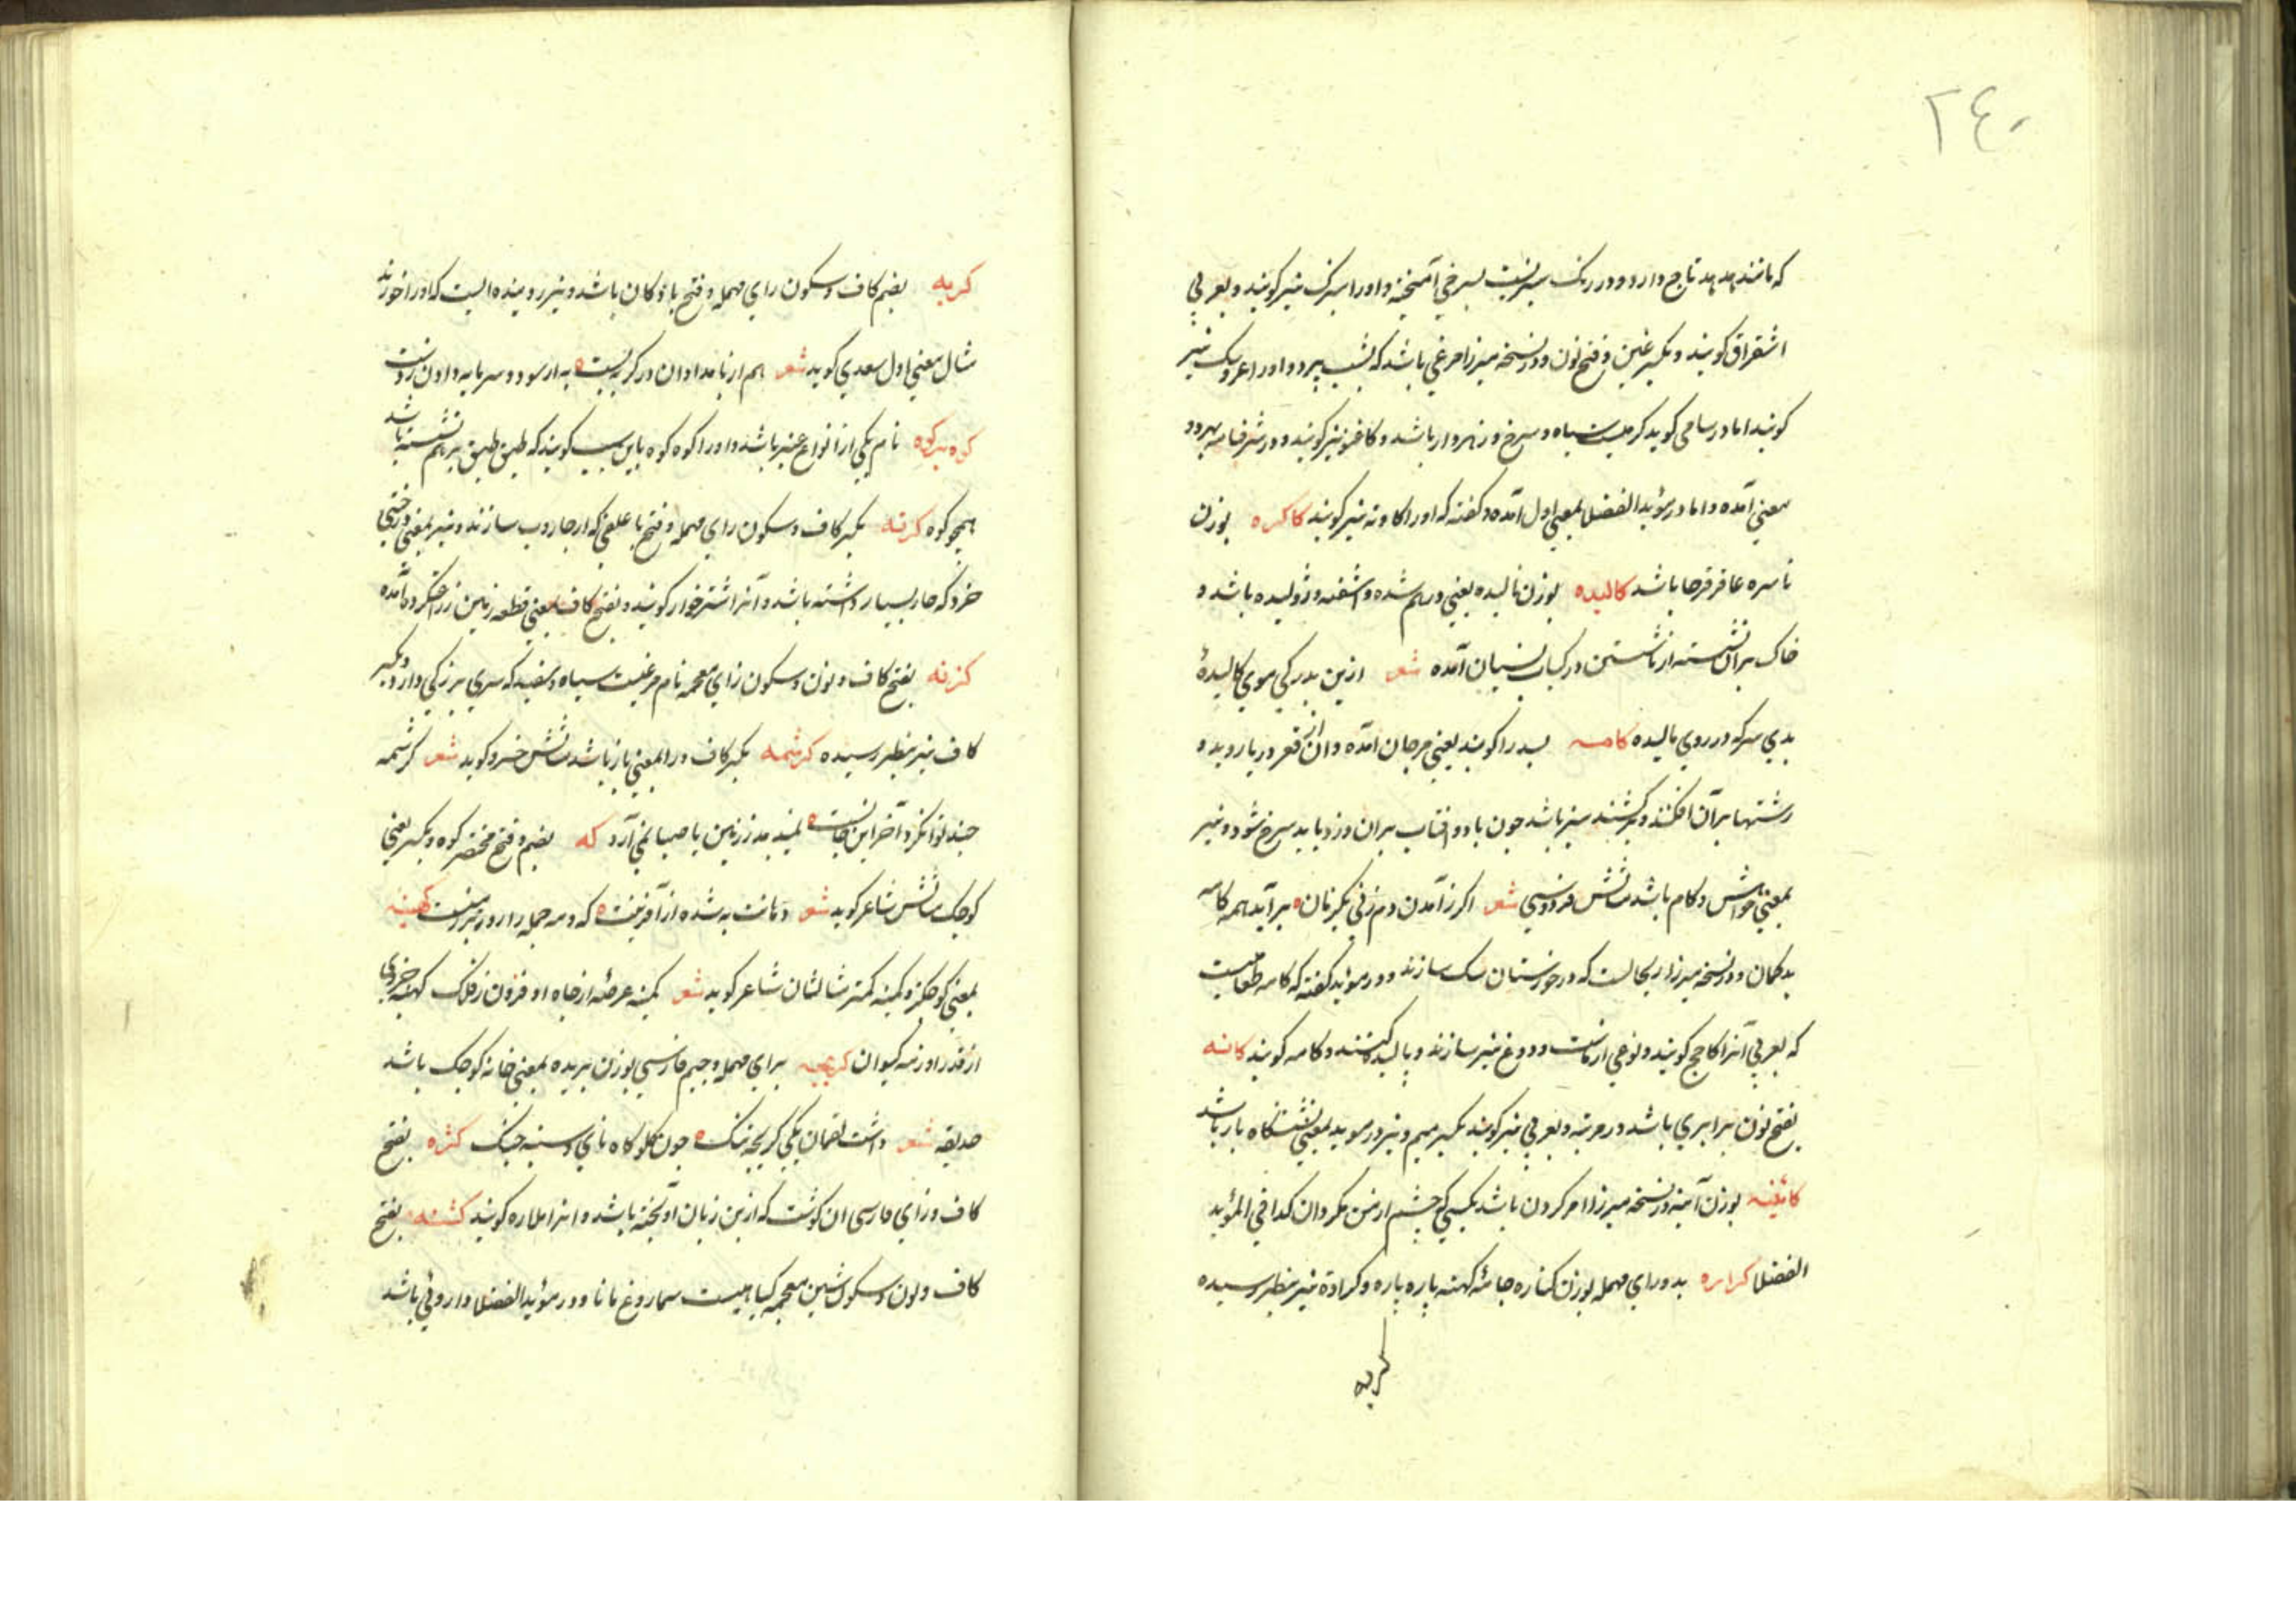 ٢٤٠
که مانند هدهد تاج دارد و در رنک سبزیست بسرخی آمیخته و اورا سبزک نیز کویند و بعربی
اشقراق کویند و بکسر غین و فتح نون و در نسخه میرزا مرغی باشد که بشب پرد و اورا عروسک نیز
کویند اما در سامی کوید کرمیست سیاه و سرخ و زهردار باشد و کاغنو نیز کویند و در شرفنامه بهر دو
معنی آمده و اما در مؤید الفضلا بمعنی اول آمده و کفته که اورا کاونه نیز کویند کاکره بوزن
ناسره عاقرقرحا باشد کالیده بوزن نالیده یعنی درهم شده و آشفته و ژولیده باشد و
خاک بران نشسته از ناشستن در کباب نسیان آمده شعر ازین بدرکی موی کالیدهٔ
بدی سرکه در روی مالیده کامسه بسد را کویند یعنی مرجان آمده و ان از قعر دریا روید و
رشتها بر آن افکنند و کشند سبز باشد چون باد و افتاب بران وزد یابد سرخ شود و نیز
بمعنی خواهش و کام باشد مثالش فردوسی شعر اکر زآمدن دم زنی یکزمان ٥ برآید همه کامه
بدکمان و در نسخه میرزا ریحالست که در خوزستان سازند و در مؤید کفته که کامه طعامیست
که بعربی آنرا کامخ کویند و نوعی از نانست و دوغ نیز سازند و کامه کویند کانه
بفتح نون برابری باشد در مرتبه و بعربی نیز کویند بکسر میم و نیز در موید بمعنی نشستگاه باز باشد
کائینه بوزن آئینه در نسخه میرزا امر کردن باشد بکسی که چشم از من مکردان کذا فی المؤید
الفضلا کراره بدو رای مهمله بوزن کناره جامهٔ کهنه پاره پاره و کراده نیز بنظر رسیده
کربه
کربه بضم کاف و سکون رای مهمله و فتح با دکان باشد و نیز رویندهٔ ایست که اورا خورند
مثال معنی اول سعدی کوید شعر هم از بامدادان در کربه بست ٥ به از سود و سرمایه دادن ز دست
کوه بر کوه نام یکی از انواع عنبر باشد و اورا کوه کوه باین سبب کویند که طبق طبق بر هم نشسته باشد
همچو کوه کرنه بکسر کاف و سکون رای مهمله و فتح با علفی که از جاروب سازند و نیز بمعنی درختی
خرد که خار بسیار داشته باشد و آنرا اشترخوار کویند و بفتح کاف بمعنی قطعه زمین زراعت کرده آمده
کزنه بفتح کاف و نون و سکون زای معجمه نام مرغیست سیاه و سفید که سری بزرکی دارد و بکسر
کاف نیز بنظر رسیده کرشمه بکسر کاف و را بمعنی ناز باشد مثالش خسرو کوید شعر کرشمه
چند توانکرد آخر این جانست ٥ زمین با صبا نمی آرد که بضم و فتح مختصر کوه و بکسر یعنی
کوچک مثالش شاعر کوید شعر دهانت به شده از آفرینت ٥ که کهینه
بمعنی کوچکتر و کمینه کمتر مثالشان شاعر کوید شعر کمینه عرصهٔ از جاه او فزون ز فلک کهینه جزوی
از قدر او زمه کیوان کریچه برای مهمله و جیم فارسی بوزن بریده بمعنی خانهٔ کوچک باشد
حدیقه شعر داشت لقمان یکی کریچه تنک ٥ چون کلوکاه نای و سینه چنک کژه بفتح
کاف و زای فارسی ان کوشت که از بن زبان آویخته باشد و انرا ملازه کویند کشنه بفتح
کاف و نون و سکون شین معجمه کیاهیست سماروغ مانا و در مؤید الفضلا داروئی باشد